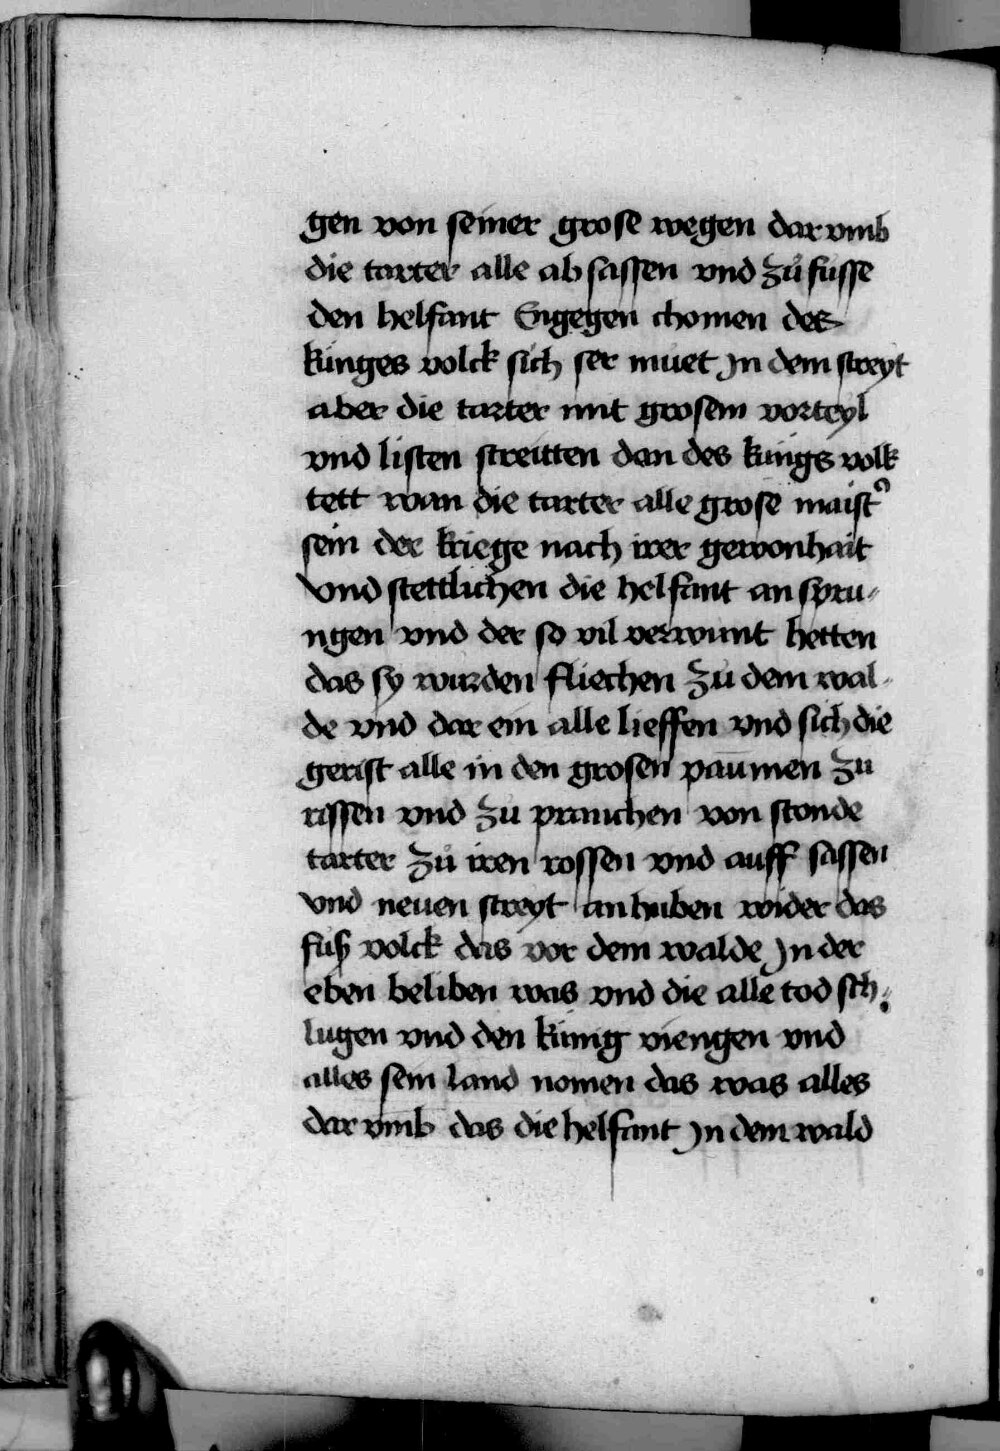 gen von seiner grose wegen dar vmb
die tarter alle ab sassen vnd zů fusse
den helfant Engegen chomen des
kunges volck sich ser muet Jn dem streyt
aber die tarter mit grosem vorteyl
vnd listen streitten dan des kungs volk
tett wan die tarter alle grose maist᾽
sein der kriege nach irer gewonhait
Vnd stettlichen die helfant an spru⸗
ngen vnd der so vil verwunt hetten
das sy wurden fliechen zu dem wal⸗
de vnd dar ein alle lieffen vnd sich die
gerist alle in den grosen paūmen zu
rissen vnd zu prauchen von stonde
tarter zů iren rossen vnd auff sassen
vnd neuen streyt an huben wider das
fuß volck das vor dem walde Jn der
eben beliben was vnd die alle tod sch⸗
lugen vnd den kunig viengen vnd
alles sein land nomen das was alles
dar vmb das die helfant Jn dem wald